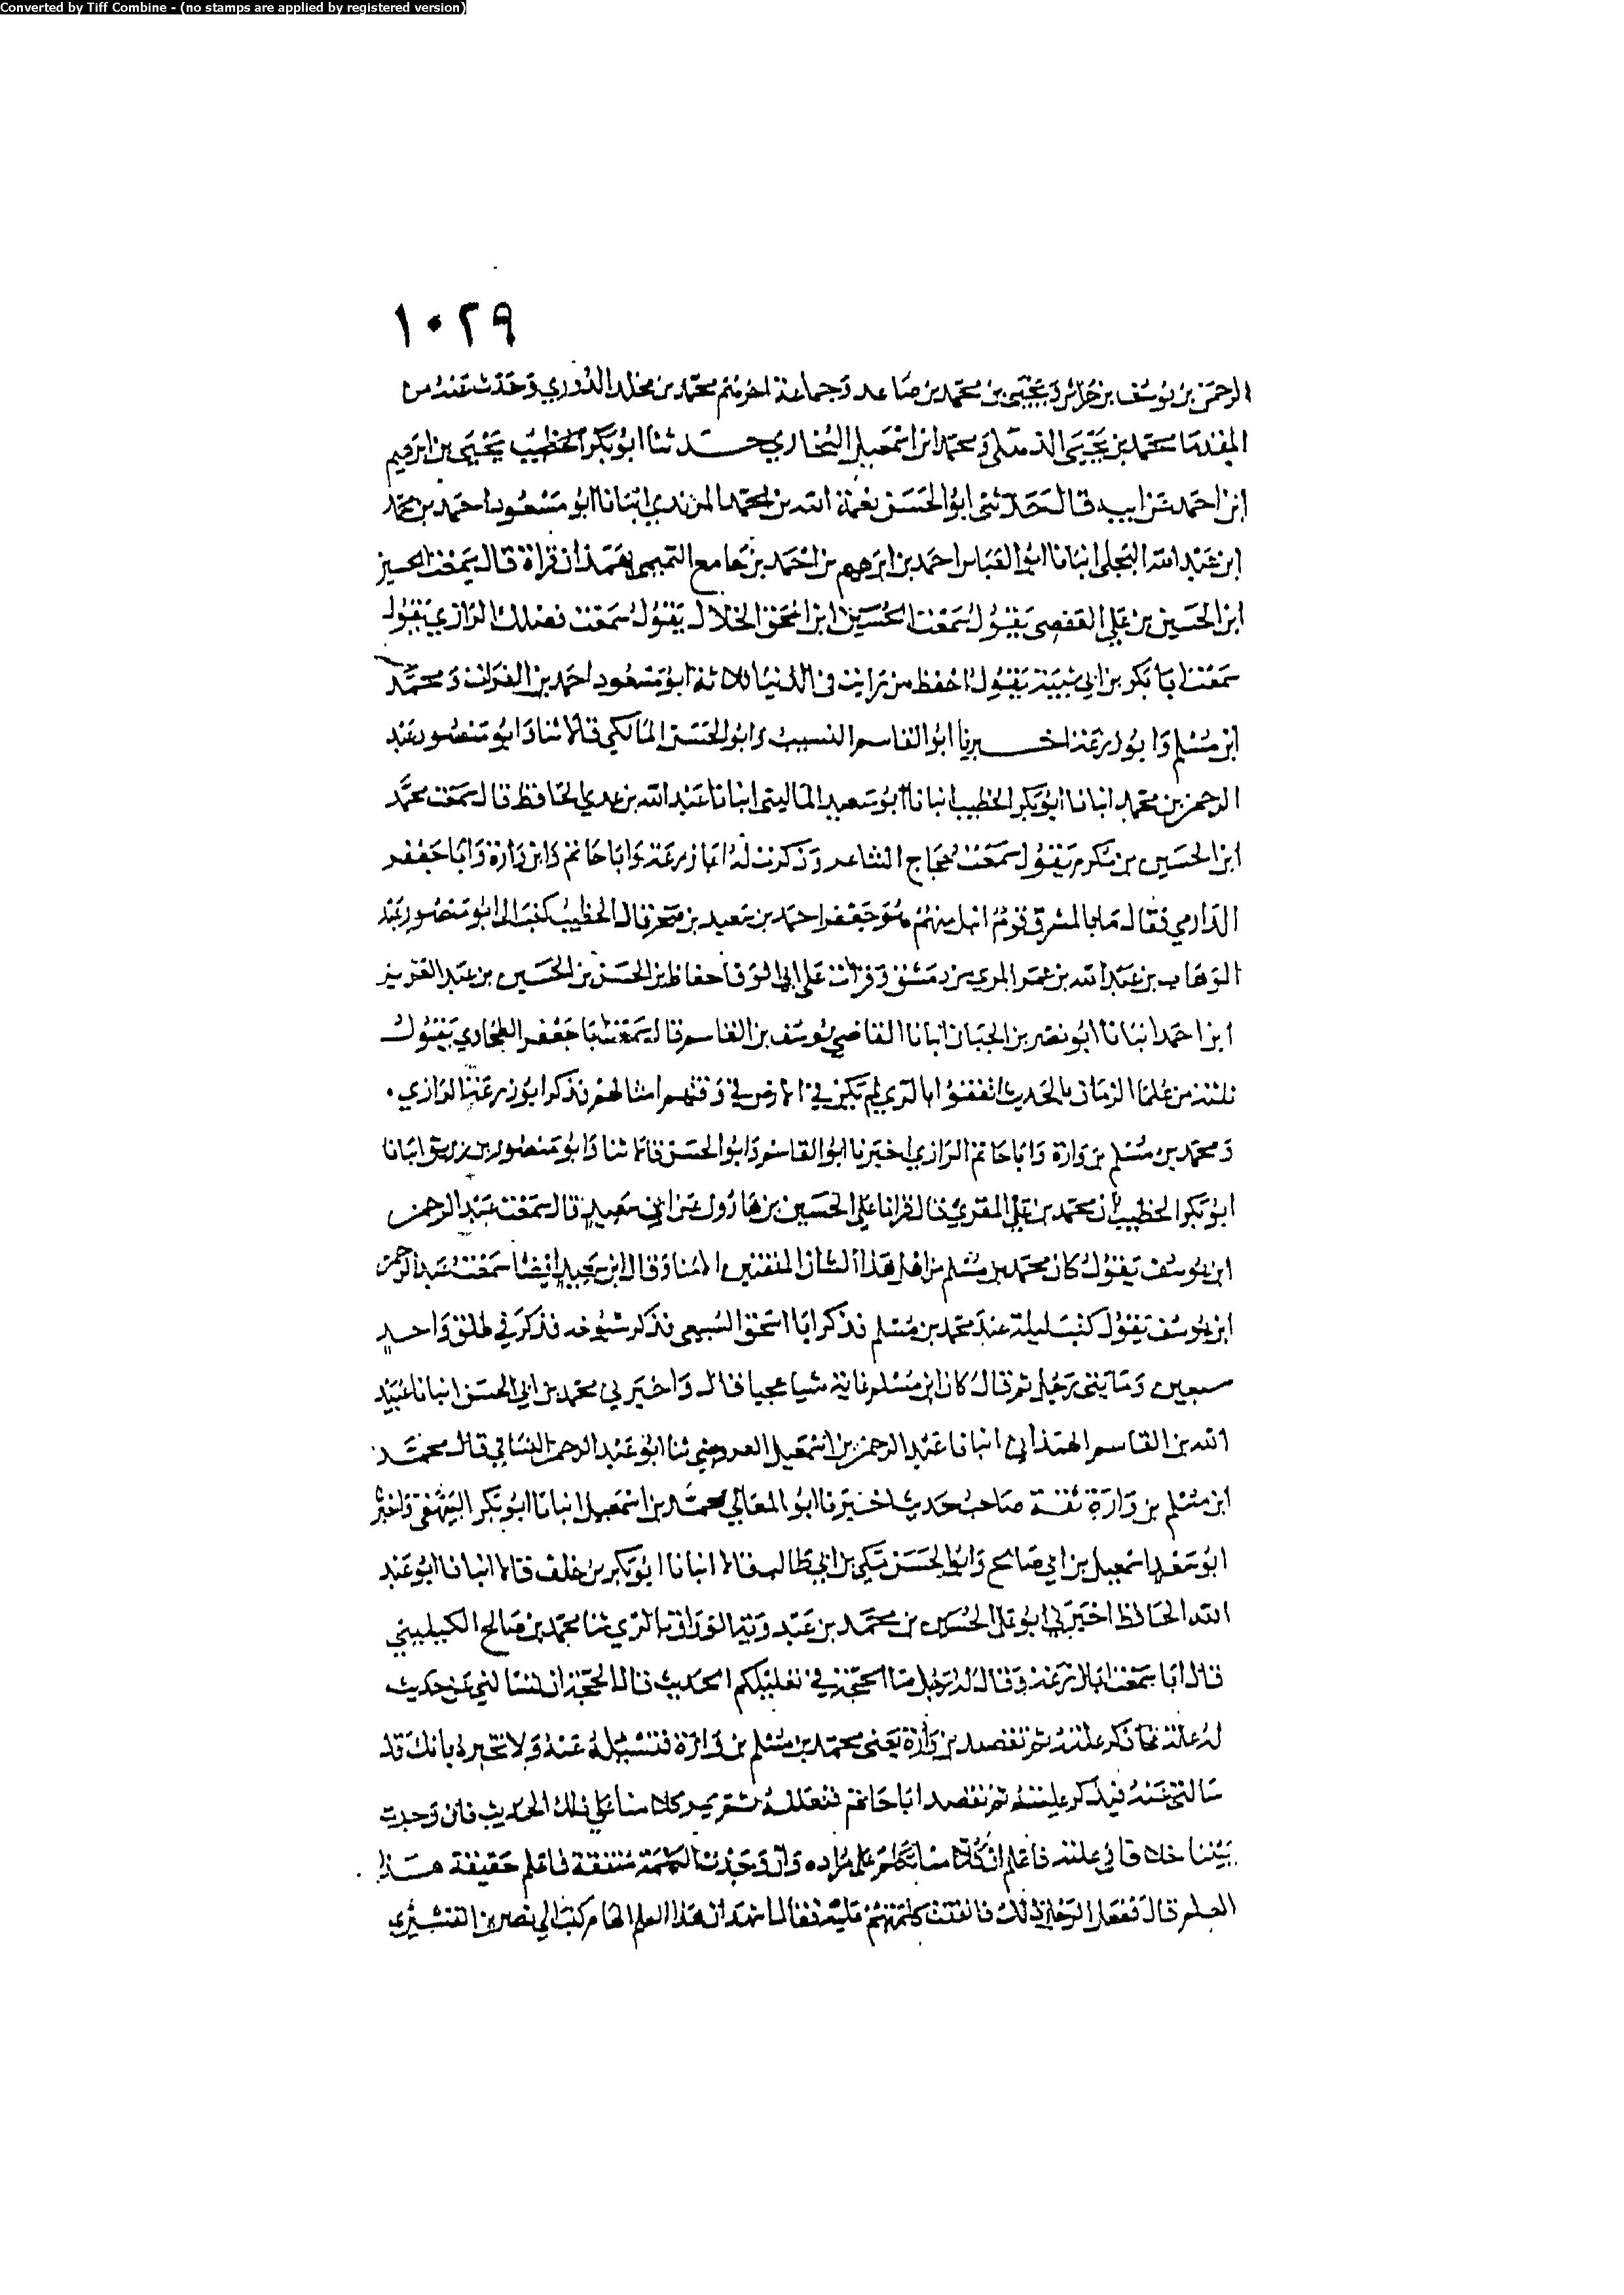 Converted by Tiff Combine - (no stamps are applied by registered version)
١٠٢٩
الرحمن بن يوسف بن خراش ويحيى بن محمد بن صاعد وجماعة اخرهم محمد بن مخلد الدوري وحدث عنه من
القدما محمد بن يحيى الذهلي ومحمد ابن اسمعيل البخاري حدثنا ابو بكر الخطيب يحيى بن ابرهيم
ابن احمد قال حدثني ابو الحسن نعمة الله بن محمد المرندي انبانا ابو مسعود احمد بن محمد
ابن عبد الله البجلي انبانا ابو العباس احمد بن ابرهيم بن احمد بن جامع التميمي بهمذان قراة قال سمعت الحسين
ابن الحسين بن علي يقول سمعت الحسين ابن اسحق الخلال يقول سمعت فضلك الرازي يقول
سمعت ابا بكر بن ابي شيبة يقول احفظ من رايت في الدنيا ثلاثة ابو مسعود احمد بن الفرات ومحمد
ابن مسلم وابو زرعة اخبرنا ابو القاسم النسيب وابو الحسن المالكي قالا ثنا وابو منصور عبد
الرحمن بن محمد انبانا ابو بكر الخطيب انبانا ابو سعيد الماليني انبانا عبد الله بن عدي الحافظ قال سمعت محمد
ابن الحسين بن مكرم يقول سمعت حجاج الشاعر وذكرت له ابا زرعة وابا حاتم وابن وارة وابا جعفر
الدارمي فقال ما بالمشرق قوم انبل منهم هو جعفر احمد بن سعيد بن صخر قال الخطيب كتب الى ابو منصور عبد
الوهاب بن عبد الله بن عمر المري من دمشق وقرات على ابي الوفا حفاظ بن الحسن بن الحسين بن عبد العزيز
ابن احمد انبانا ابو نصر بن الجبان انبانا القاضي يوسف بن القاسم قال سمعت ابا جعفر الطحاوي يقول
ثلثة من علما الزمان بالحديث اتفقوا بالري لم يكن في الارض في وقتهم امثالهم فذكر ابو زرعة الرازي .
ومحمد بن مسلم بن وارة وابا حاتم الرازي اخبرنا ابو القاسم وابو الحسن قالا ثنا وابو منصور بن زريق انبانا
ابو بكر الخطيب ان محمد بن علي المقرئ قال قرانا على الحسين بن هارون عن ابن سعيد قال سمعت عبد الرحمن
ابن يوسف يقول كان محمد بن مسلم من اهل هذا الشان المتقنين الامنا وقال ابن سعيد ايضا سمعت عبد الرحمن
ابن يوسف يقول كنت ليلة عند محمد بن مسلم فذكر ابا اسحق السبيعي فذكر شيوخه فذكر في طلق واحد
سبعين ومايتي رجل ثم قال كان ابن مسلم غاية شيا عجبا قال واخبرني محمد بن ابي الحسن انبانا عبيد
الله بن القاسم الهمذاني انبانا عبد الرحمن بن اسمعيل العروضي ثنا ابو عبد الرحمن النسائي قال محمد
ابن مسلم بن وارة ثقة صاحب حديث اخبرنا ابو المعالي محمد بن اسمعيل انبانا ابو بكر البيهقي واخبرنا
ابو سعد اسمعيل بن ابي صالح وابو الحسن مكي بن ابي طالب قالا انبانا ابو بكر بن خلف قالا انبانا ابو عبد
الله الحافظ اخبرني ابو علي الحسين بن محمد بن عبدويه الوراق بالري ثنا محمد بن صالح الكيليني
قال ابا سمعت ابا زرعة وقال له رجل ما الحجة في تعليلكم الحديث قال الحجة ان تسالني عن حديث
له علة فاذكر علته ثم تقصد بن وارة يعني محمد بن مسلم بن وارة فتسئله عنه ولا تخبره بانك قد
سالتني عنه فيذكر علته ثم تقصد ابا حاتم فتعلله ثم تميز كلامنا على ذلك الحديث فان وجدت
بيننا خلافا في علته فاعلم ان كلا منا تكلم على مراده وان وجدت الكلمة متفقة فاعلم حقيقة هذا
العلم قال ففعل الرجل ذلك فاتفقت كلمتهم عليه فقال اشهد ان هذا العلم الهام كتب الي نصر بن القشيري